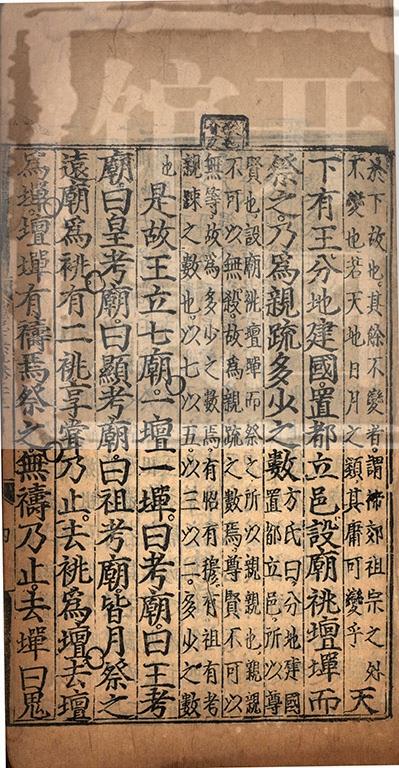 於下故也其餘不變者謂禘郊祖宗之外
不變也若天地日月之類其庸可變乎
天
下有王分地建國置都立邑設廟祧壇墠而
祭之乃爲親疏多少之數
方氏曰分地建國
置都立邑所以尊
賢也設廟祧壇墠而祭之所以親親也親親
不可以無殺故爲親疏之數焉尊賢不可以
無等故爲多少之數焉有昭有穆有祖有考
親踈之數也以七以五以三以二多少之數
也
是故王立七廟一壇一墠曰考廟曰王考
廟曰皇考廟曰顯考廟曰祖考廟皆月祭之
遠廟爲祧有二祧享嘗乃止去祧爲壇去壇
爲墠壇墠有禱焉祭之無禱乃止去墠曰鬼